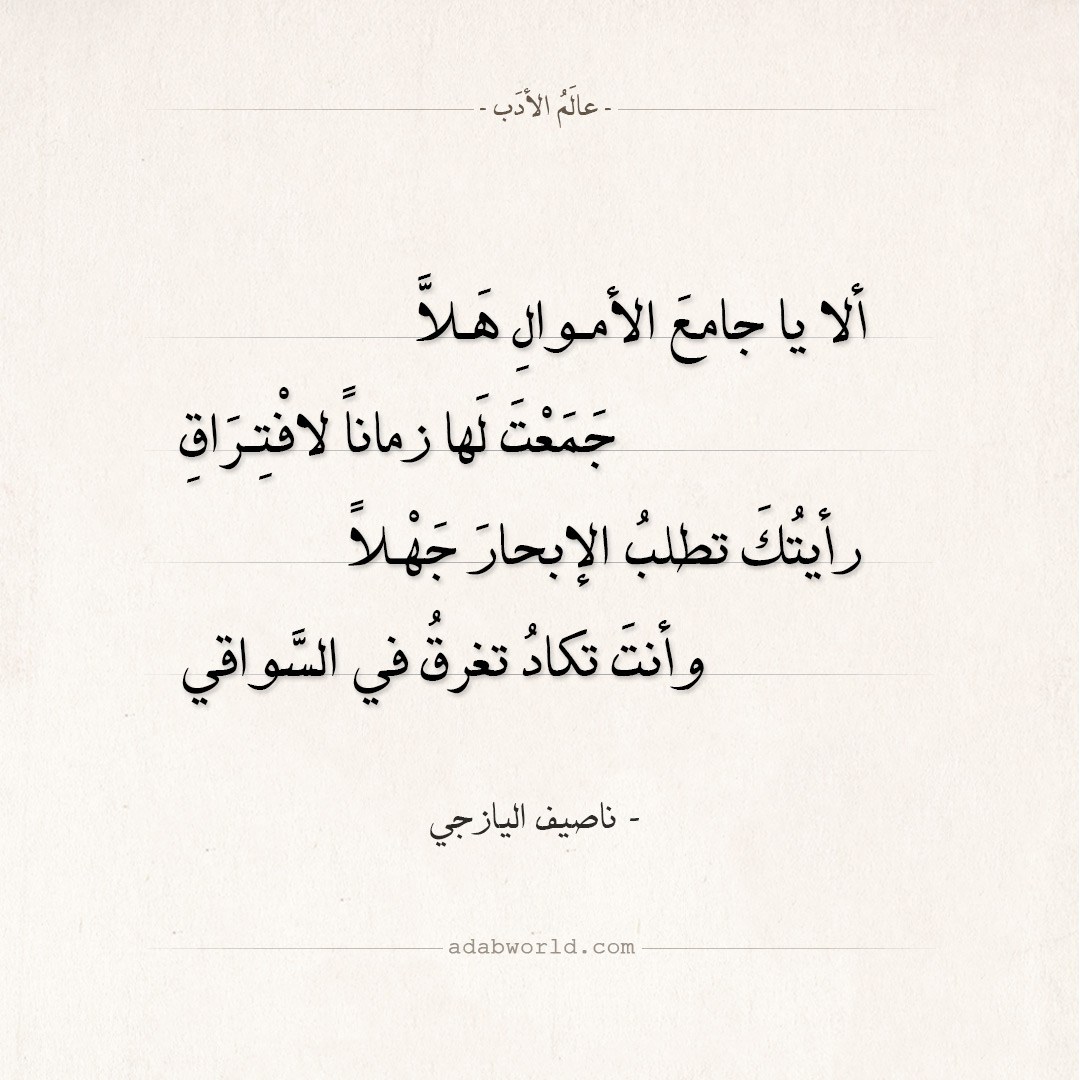 - عالَمُ الأدَب -
ألا يا جامعَ الأمـوالِ هَـلاَّ
جَمَعْتَ لَها زماناً لافْتِـرَاقِ
رأيتُكَ تطلبُ الإبحارَ جَهْـلاً
وأنتَ تكادُ تغرقُ في السَّواقي
- ناصيف اليازجي
adabworld.com